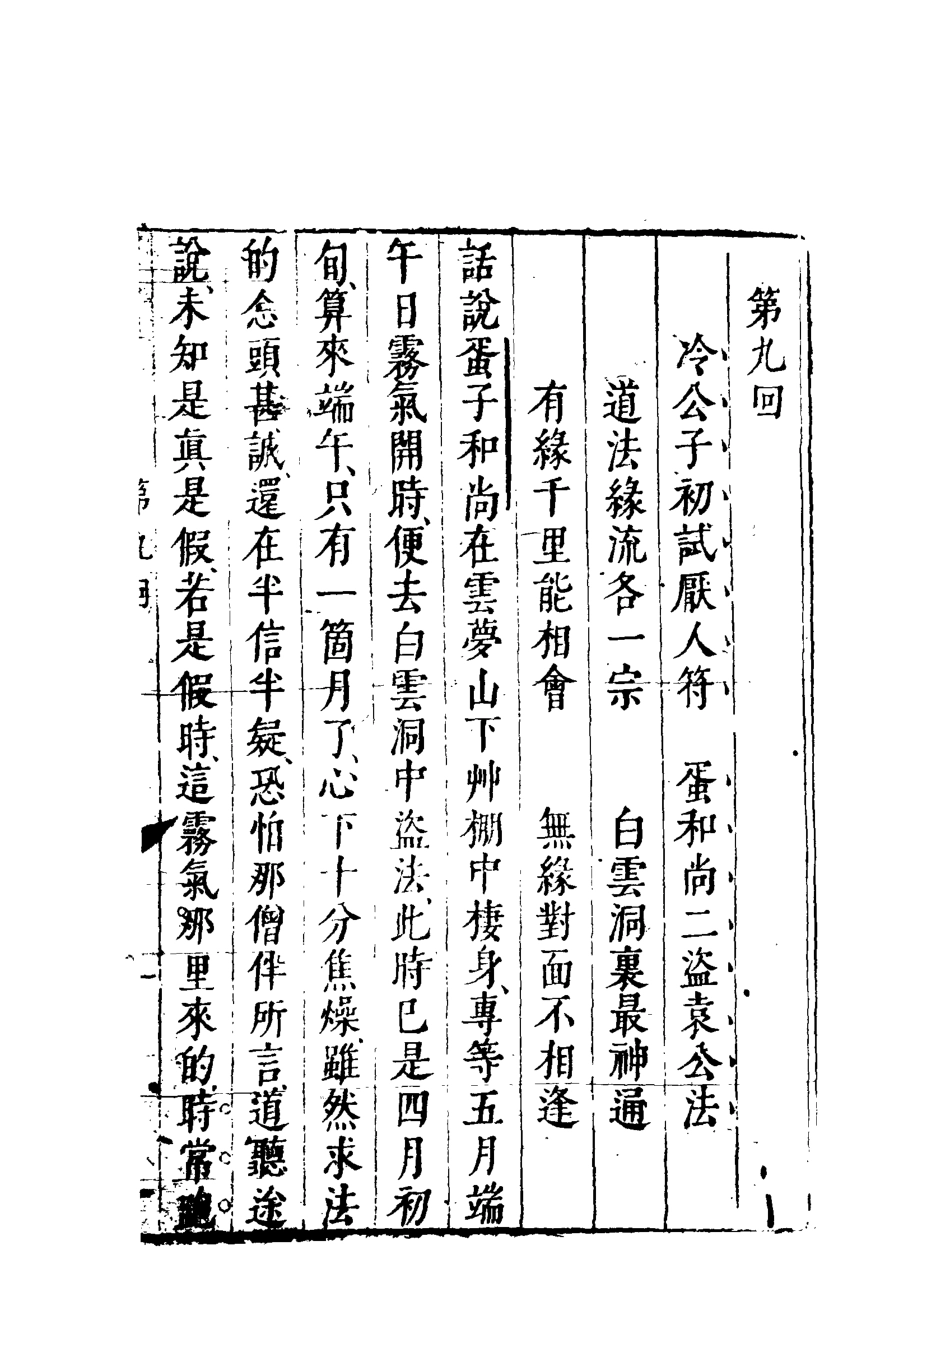 第九回
冷公子初試厭人符　蛋和尚二盜袁公法
道法緣流各一宗　白雲洞裏最神通
有緣千里能相會　無緣對面不相逢
話說蛋子和尚在雲夢山下艸棚中棲身、專等五月端
午日霧氣開時、便去白雲洞中盜法、此時巳是四月初
旬、算來端午、只有一箇月了、心下十分焦燥、雖然求法
的念頭甚誠、還在半信半疑、恐怕那僧伴所言、道聽途
說、未知是真是假、若是假時、這霧氣那里來的、時常
第九回